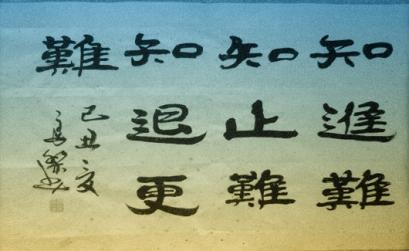 知進難
知止難
知退更
難
己丑夏